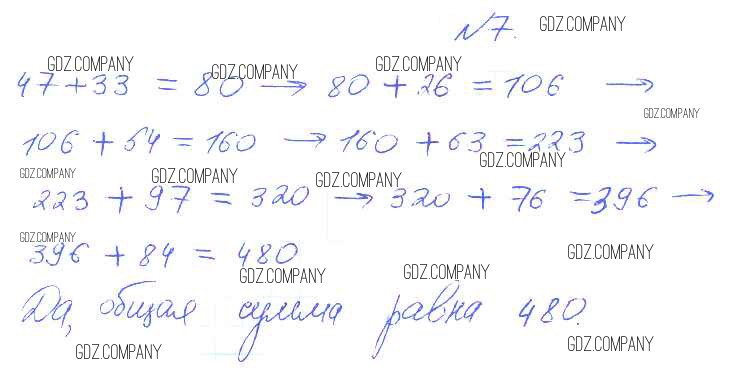 N7. GDZ.COMPANY
GDZ.COMPANY GDZ.COMPANY GDZ.COMPANY
47+33 = 80 → 80 + 26 = 106 →
GDZ.COMPANY
106 + 54 = 160 → 160 + 63 = 223 →
GDZ.COMPANY
GDZ.COMPANY GDZ.COMPANY GDZ.COMPANY
223 + 97 = 320 → 320 + 76 = 396 →
GDZ.COMPANY
396 + 84 = 480
GDZ.COMPANY
GDZ.COMPANY GDZ.COMPANY
Да, общая сумма равна 480.
GDZ.COMPANY GDZ.COMPANY